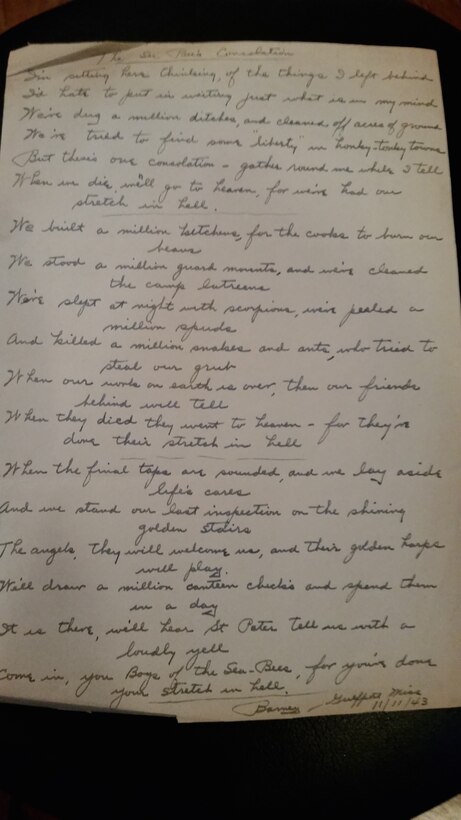 The Sea Bee's Consolation
I'm sitting here thinking, of the things I left behind
I'd hate to put in writing just what is in my mind
We've dug a million ditches, and cleaned off acres of ground
We've tried to find some "liberty" in honky-tonky towns
But there's one consolation - gather round me while I tell
When we die, we'll go to heaven, for we've had our
stretch in hell.
We built a million kitchens, for the cooks to burn our
beans
We stood a million guard mounts, and we've cleaned
the camp latreens
We've slept at night with scorpions, we've pealed a
million spuds
And killed a million snakes and ants, who tried to
steal our grub
When our work on earth is over, then our friends
behind will tell
When they died they went to heaven - for they've
done their stretch in hell
When the final taps are sounded, and we lay aside
life's cares
And we stand our last inspection on the shining
golden stairs
The angels, they will welcome us, and their golden harps
will play.
We'll draw a million canteen checks and spend them
in a day
It is there, we'll hear St Peter tell us with a
loudly yell
Come in, you Boys of the Sea-Bees, for you've done
your stretch in hell.
Barney / Gulfport Miss
11/11/43